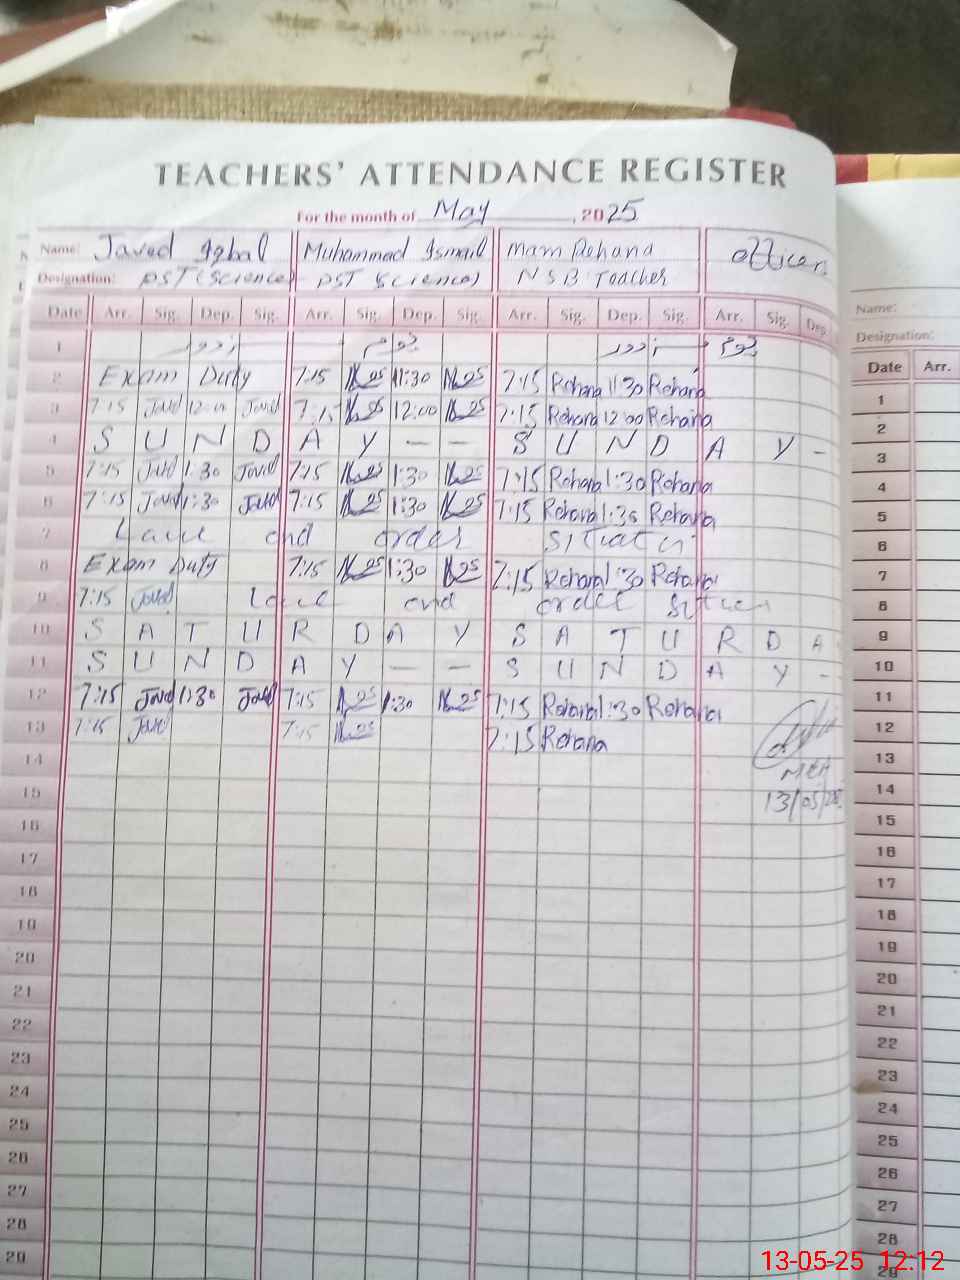 TEACHERS' ATTENDANCE REGISTER
For the month of May, 2025
Name: Javed Iqbal Muhammad Ismail Mam Rohana officers
Designation: PST (Science) PST Science) NSB Teacher
Date Arr. Sig. Dep. Sig. Arr. Sig. Dep. Sig. Arr. Sig. Dep. Sig. Arr. Sig. Dep.
1 یوم یوم
2 Exam Duty 7:15 11:30 7:15 Rohana 11:30 Rohana
3 7:15 Javed 12:00 Javed 7:15 12:00 7:15 Rohana 12:00 Rohana
4 S U N D A Y - - S U N D A Y -
5 7:15 Javed 1:30 Javed 7:15 1:30 7:15 Rohana 1:30 Rohana
6 7:15 Javed 1:30 Javed 7:15 1:30 7:15 Rohana 1:30 Rohana
7 and order
8 Exam Duty 7:15 1:30 7:15 Rohana 1:30 Rohana
9 7:15 Javed and order
10 S A T U R D A Y S A T U R D A
11 S U N D A Y - - S U N D A Y -
12 7:15 Javed 1:30 Javed 7:15 1:30 7:15 Rohana 1:30 Rohana
13 7:15 Javed 7:15 7:15 Rohana
14 MEA
15 13/05/25
16
17
18
19
20
21
22
23
24
25
26
27
28
29
Name:
Designation:
Date Arr.
1
2
3
4
5
6
7
8
9
10
11
12
13
14
15
16
17
18
19
20
21
22
23
24
25
26
27
28
29
13-05-25 12.12